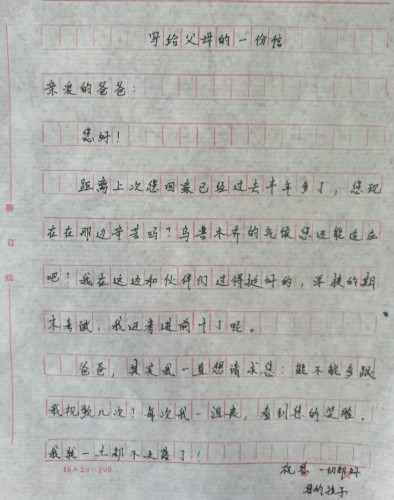 写给父母的一份信
亲爱的爸爸：
您好！
距离上次您回家已经过去半年多了，您现
在在那边辛苦吗？乌鲁木齐的气候您还能适应
吧？我在这边和伙伴们过得挺好的，学校的期
末考试，我还考进前十了呢。
爸爸，其实我一直想请求您：能不能多跟
我视频几次？每次我一沮丧，看到您的笑脸，
我就一点都不失落了！
祝爸 一切都好
您的孩子
装订线
10×20=200